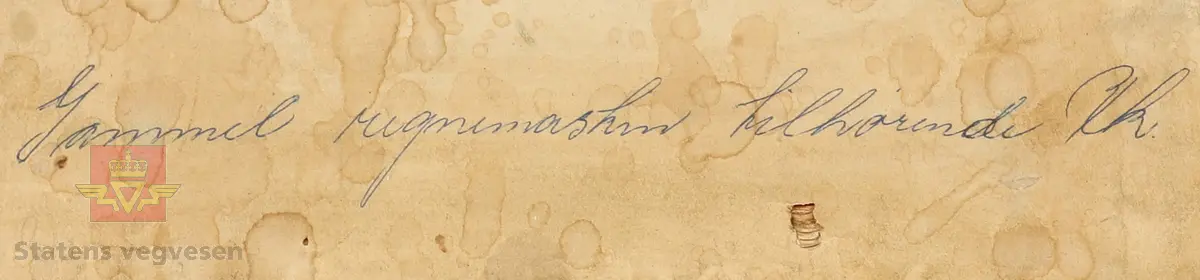 Gammel regnemaskin tilhørende Vk.
Statens vegvesen